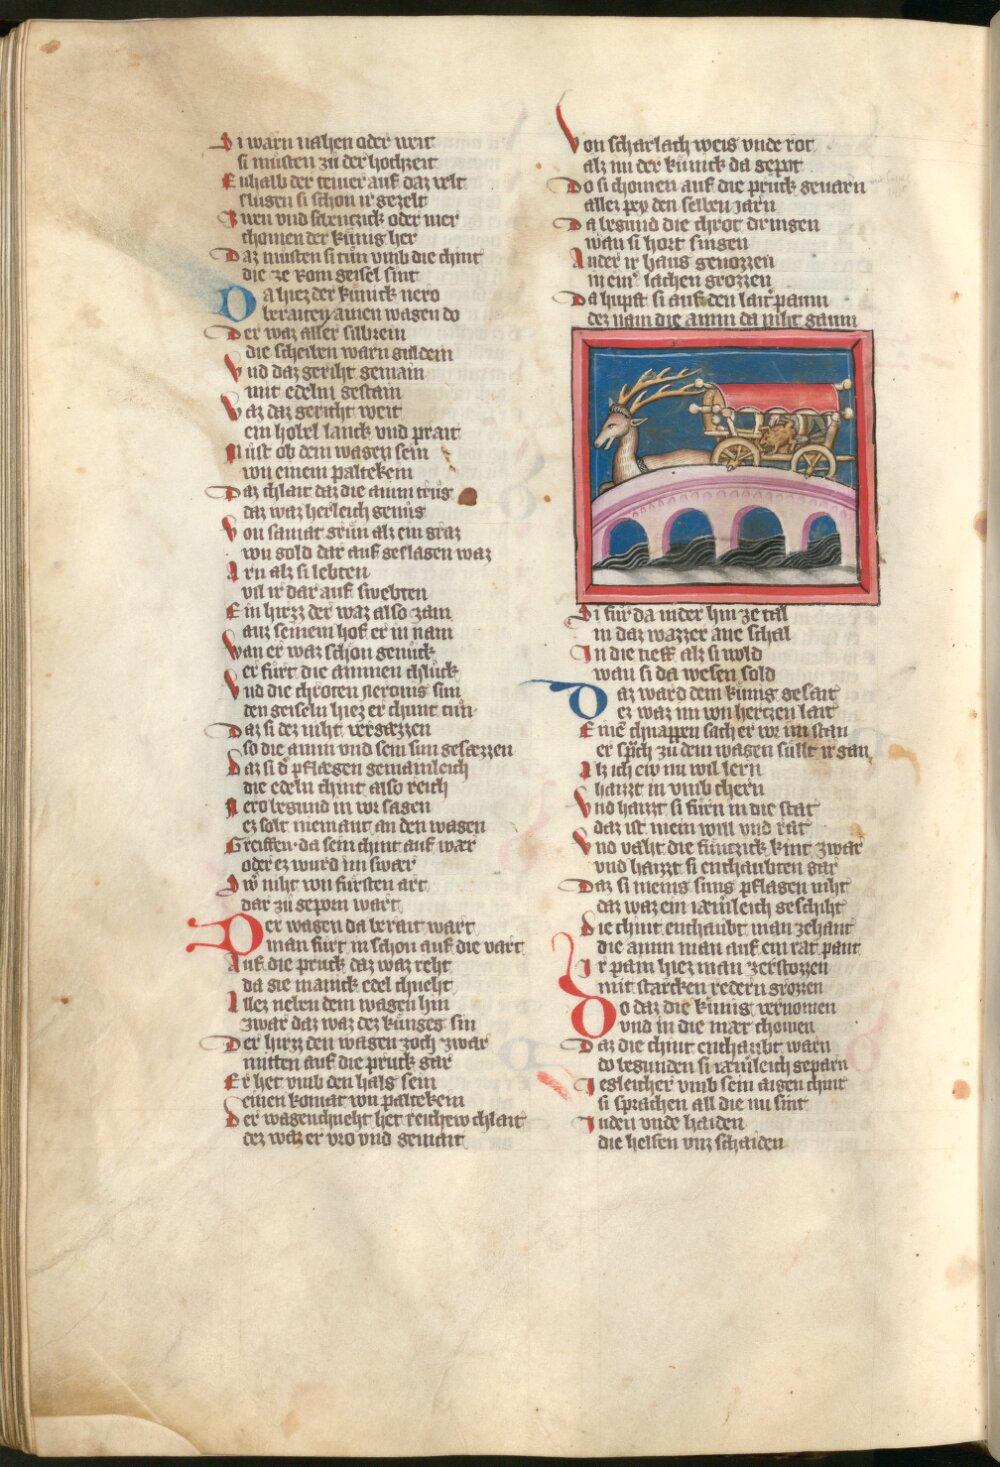 Si warn nahen oder weit
si musten zu der hochzeit
Enhalb der teiver auf daz velt
slugen si schon ir gezelt
Zwen vnd sibentzick oder mer
chomen der kunig her
Daz musten si tun vmb die chint
die ze rom geisel sint
Da hiez der kunick nero
beraiten ainen wagen do
Der waz aller silbrein
die scheiben warn guldein
Vnd daz geriht gemain
mit edelm gestain
Vaz daz gericht weit
ein hobel lanck vnd prait
Must ob dem wagen sein
von einem paltekein
Daz chlait daz die amm trug
daz waz herleich genug
Von samat grun alz ein graz
von gold dar auf geslagen waz
Arn alz si lebten
vil ir dar auf swebten
Ein hirzz der waz also zam
auz seinem hof er in nam
Wan er waz schon genuck
er furt die ammen chluck
Vnd die chroten neronis sun
den geiseln hiez er chunt tun
Daz si dez niht vergæzzen
so die amm vnd sein sun gesæzzen
Daz si d pflægen gemainleich
die edeln chint also reich
Nero begund in vor sagen
ez solt niemant an den wagen
Greiffen da sein chint auf wær
oder ez wurd im swær
Der niht von fursten art
dar zu geporn wart
Der wagen da berait wart
man furt in schon auf die vart
Auf die pruck daz waz reht
da gie manick edel chneht
Allez neben dem wagen hin
zwar daz waz dez kunges sin
Der hirzz den wagen zoch zwar
mitten auf die pruck gar
Er het vmb den hals sein
einen komat von paltekein
Der wagenchneht het reichew chlait
dez waz er vro vnd gemait
Von scharlach weis vnde rot
alz im der kunick da gepot
Do si chomen auf die pruck gevarn
allez pey den selben jarn
Da begund die chrot dringen
wan si hort singen
Ander ir haus genozzen
in ein lachen grozzen
Da hupft si auf den lait paum
dez nam die amm da niht gaum
Si fur da nider hin ze tal
in daz wazzer ane schal
In die tieff alz si wold
wan si da wesen sold
Daz ward dem kunig gesait
ez waz im von hertzen lait
Einē chnappen sach er vor im stan
er sprch zu dem wagen sullt ir gan
Alz ich ew nu wil lern
haizzt in vmb chern
Vnd haizzt si furn in die stat
daz ist mein will vnd rat
Vnd vaht die funtzick kint zwar
vnd haizzt si enthaubten gar
Daz si meins suns pflagen niht
daz waz ein iæmleich geschiht
Die chint enthaubt man zehant
die amm man auf ein rat pant
Ir pain hiez man zerstozzen
mit starcken redern grozzen
Do daz die kunig vernomen
vnd in die mær chomen
Daz die chint enthaubt warn
do begunden si iæmleich geparn
Iegleicher vmb sein aigen chint
si sprachen all die nu sint
Juden vnde haiden
die helfen vnz schaiden